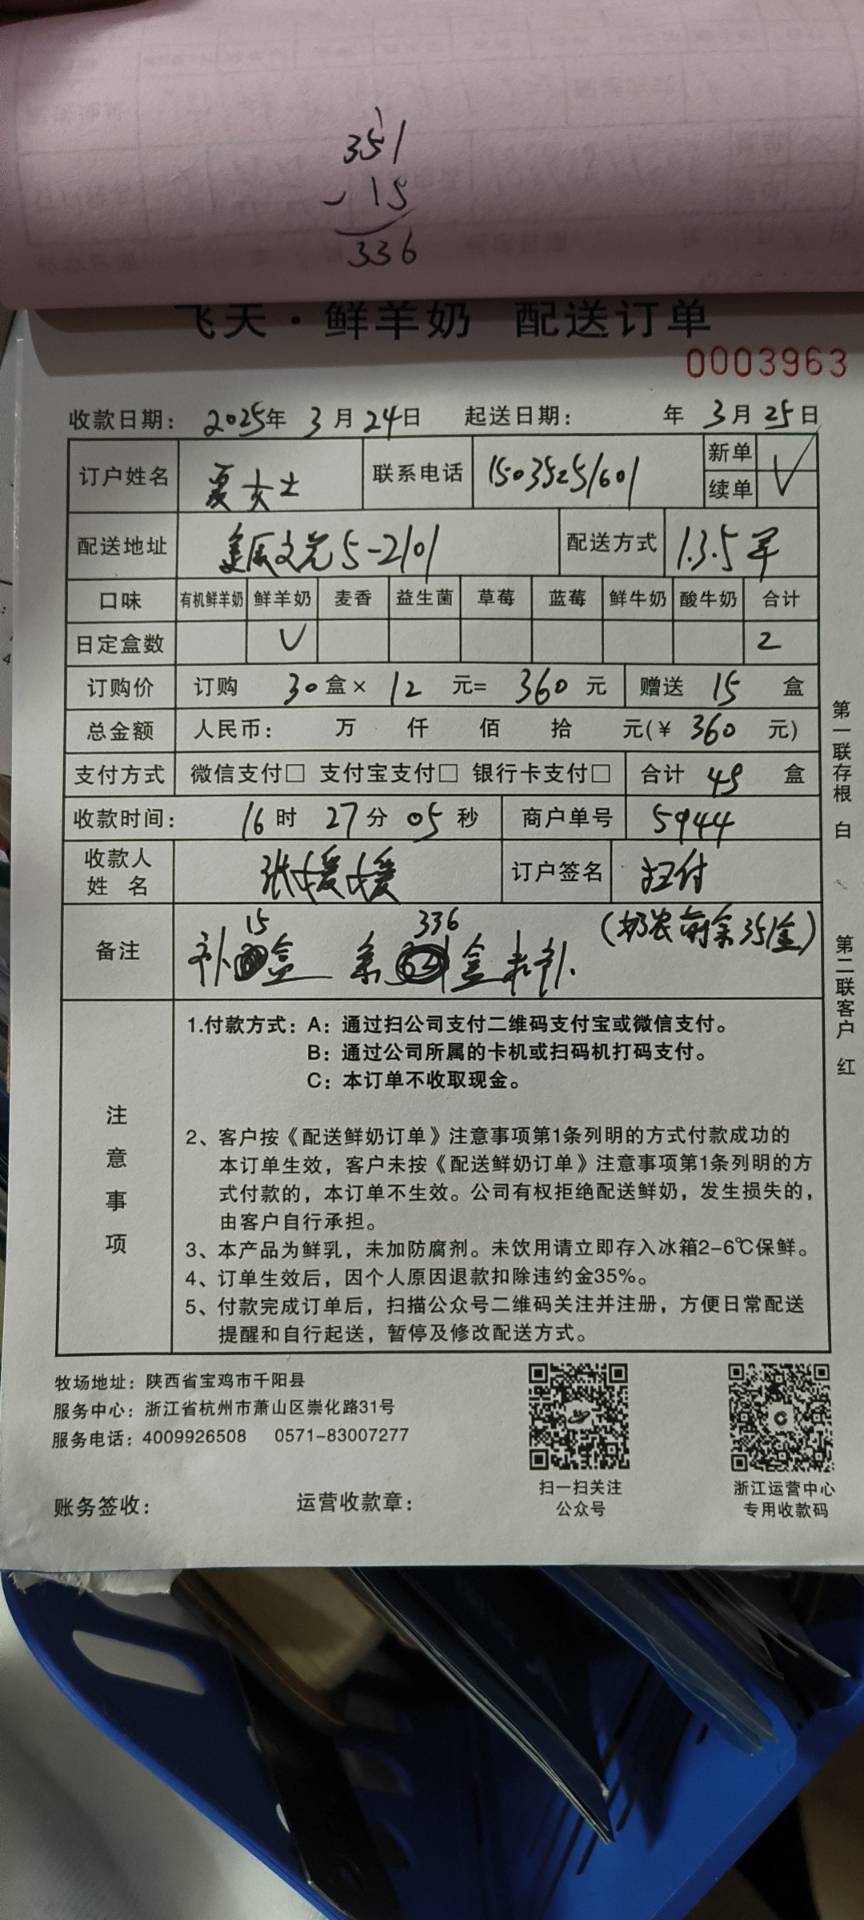 351
- 15
336
飞天·鲜羊奶 配送订单
0003963
收款日期: 2025年 3月 24日 起送日期: 年 3月 25日
订户姓名 夏女士 联系电话 15035251601 新单 续单 √
配送地址 文苑5-2101 配送方式 1.3.5 早
口味 有机鲜羊奶 鲜羊奶 麦香 益生菌 草莓 蓝莓 鲜牛奶 酸牛奶 合计
日定盒数 √ 2
订购价 订购 30盒× 12 元= 360 元 赠送 15 盒
总金额 人民币: 万 仟 佰 拾 元(¥ 360 元)
支付方式 微信支付□ 支付宝支付□ 银行卡支付□ 合计 45 盒
收款时间: 16时 27分 05秒 商户单号 5944
收款人姓名 张媛媛 订户签名 扫付
备注 补15盒 余336盒未补. (奶农前余351盒)
注意事项
1.付款方式: A: 通过扫公司支付二维码支付宝或微信支付。
B: 通过公司所属的卡机或扫码机打码支付。
C: 本订单不收取现金。
2、客户按《配送鲜奶订单》注意事项第1条列明的方式付款成功的
本订单生效，客户未按《配送鲜奶订单》注意事项第1条列明的方
式付款的，本订单不生效。公司有权拒绝配送鲜奶，发生损失的，
由客户自行承担。
3、本产品为鲜乳，未加防腐剂。未饮用请立即存入冰箱2-6℃保鲜。
4、订单生效后，因个人原因退款扣除违约金35%。
5、付款完成订单后，扫描公众号二维码关注并注册，方便日常配送
提醒和自行起送，暂停及修改配送方式。
第一联存根 白
第二联客户 红
牧场地址: 陕西省宝鸡市千阳县
服务中心: 浙江省杭州市萧山区崇化路31号
服务电话: 4009926508 0571-83007277
扫一扫关注
公众号
浙江运营中心
专用收款码
账务签收: 运营收款章: